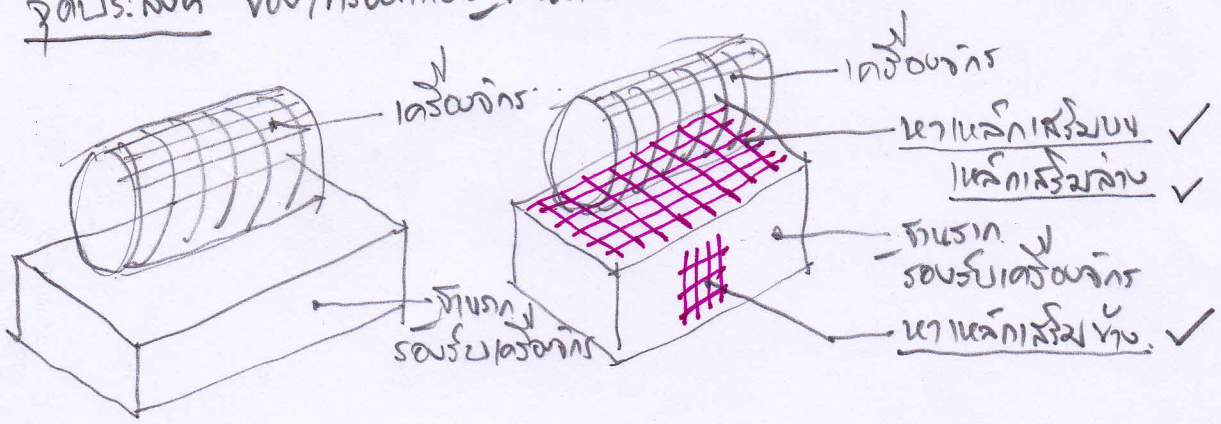 จุดประสงค์ ของ
เครื่องจักร
ฐานราก
รองรับเครื่องจักร
เครื่องจักร
หาเหล็กเสริมบน
เหล็กเสริมล่าง
ฐานราก
รองรับเครื่องจักร
หาเหล็กเสริมข้าง